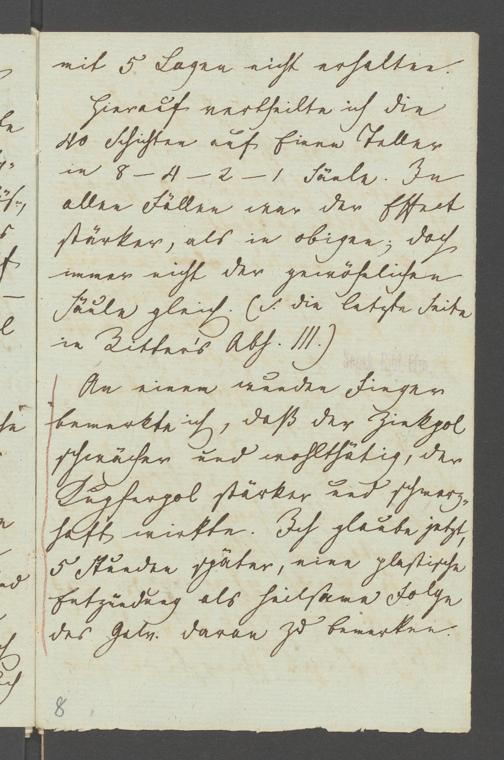 mit 5 Lagen nicht erhalten.
Hierauf vertheilte ich die
40 Schichten auf Einen Teller
in 8 – 4 – 2 – 1 Säule. In
allen Fällen war der Effect
stärker, als in obigen; doch
immer nicht der gewöhnlichen
Säule gleich. (s. die letzte Seite
in Ritter's Abh. III.)
An einem wunden Finger
bemerkte ich, daß der Zinkpol
schwächer und wohlthätig, der
Kupferpol stärker und schmerz-
haft wirkte. Ich glaube jetzt,
5 Stunden später, eine plastische
Entzündung als heilsame Folge
des Galv. daran zu bemerken.
8